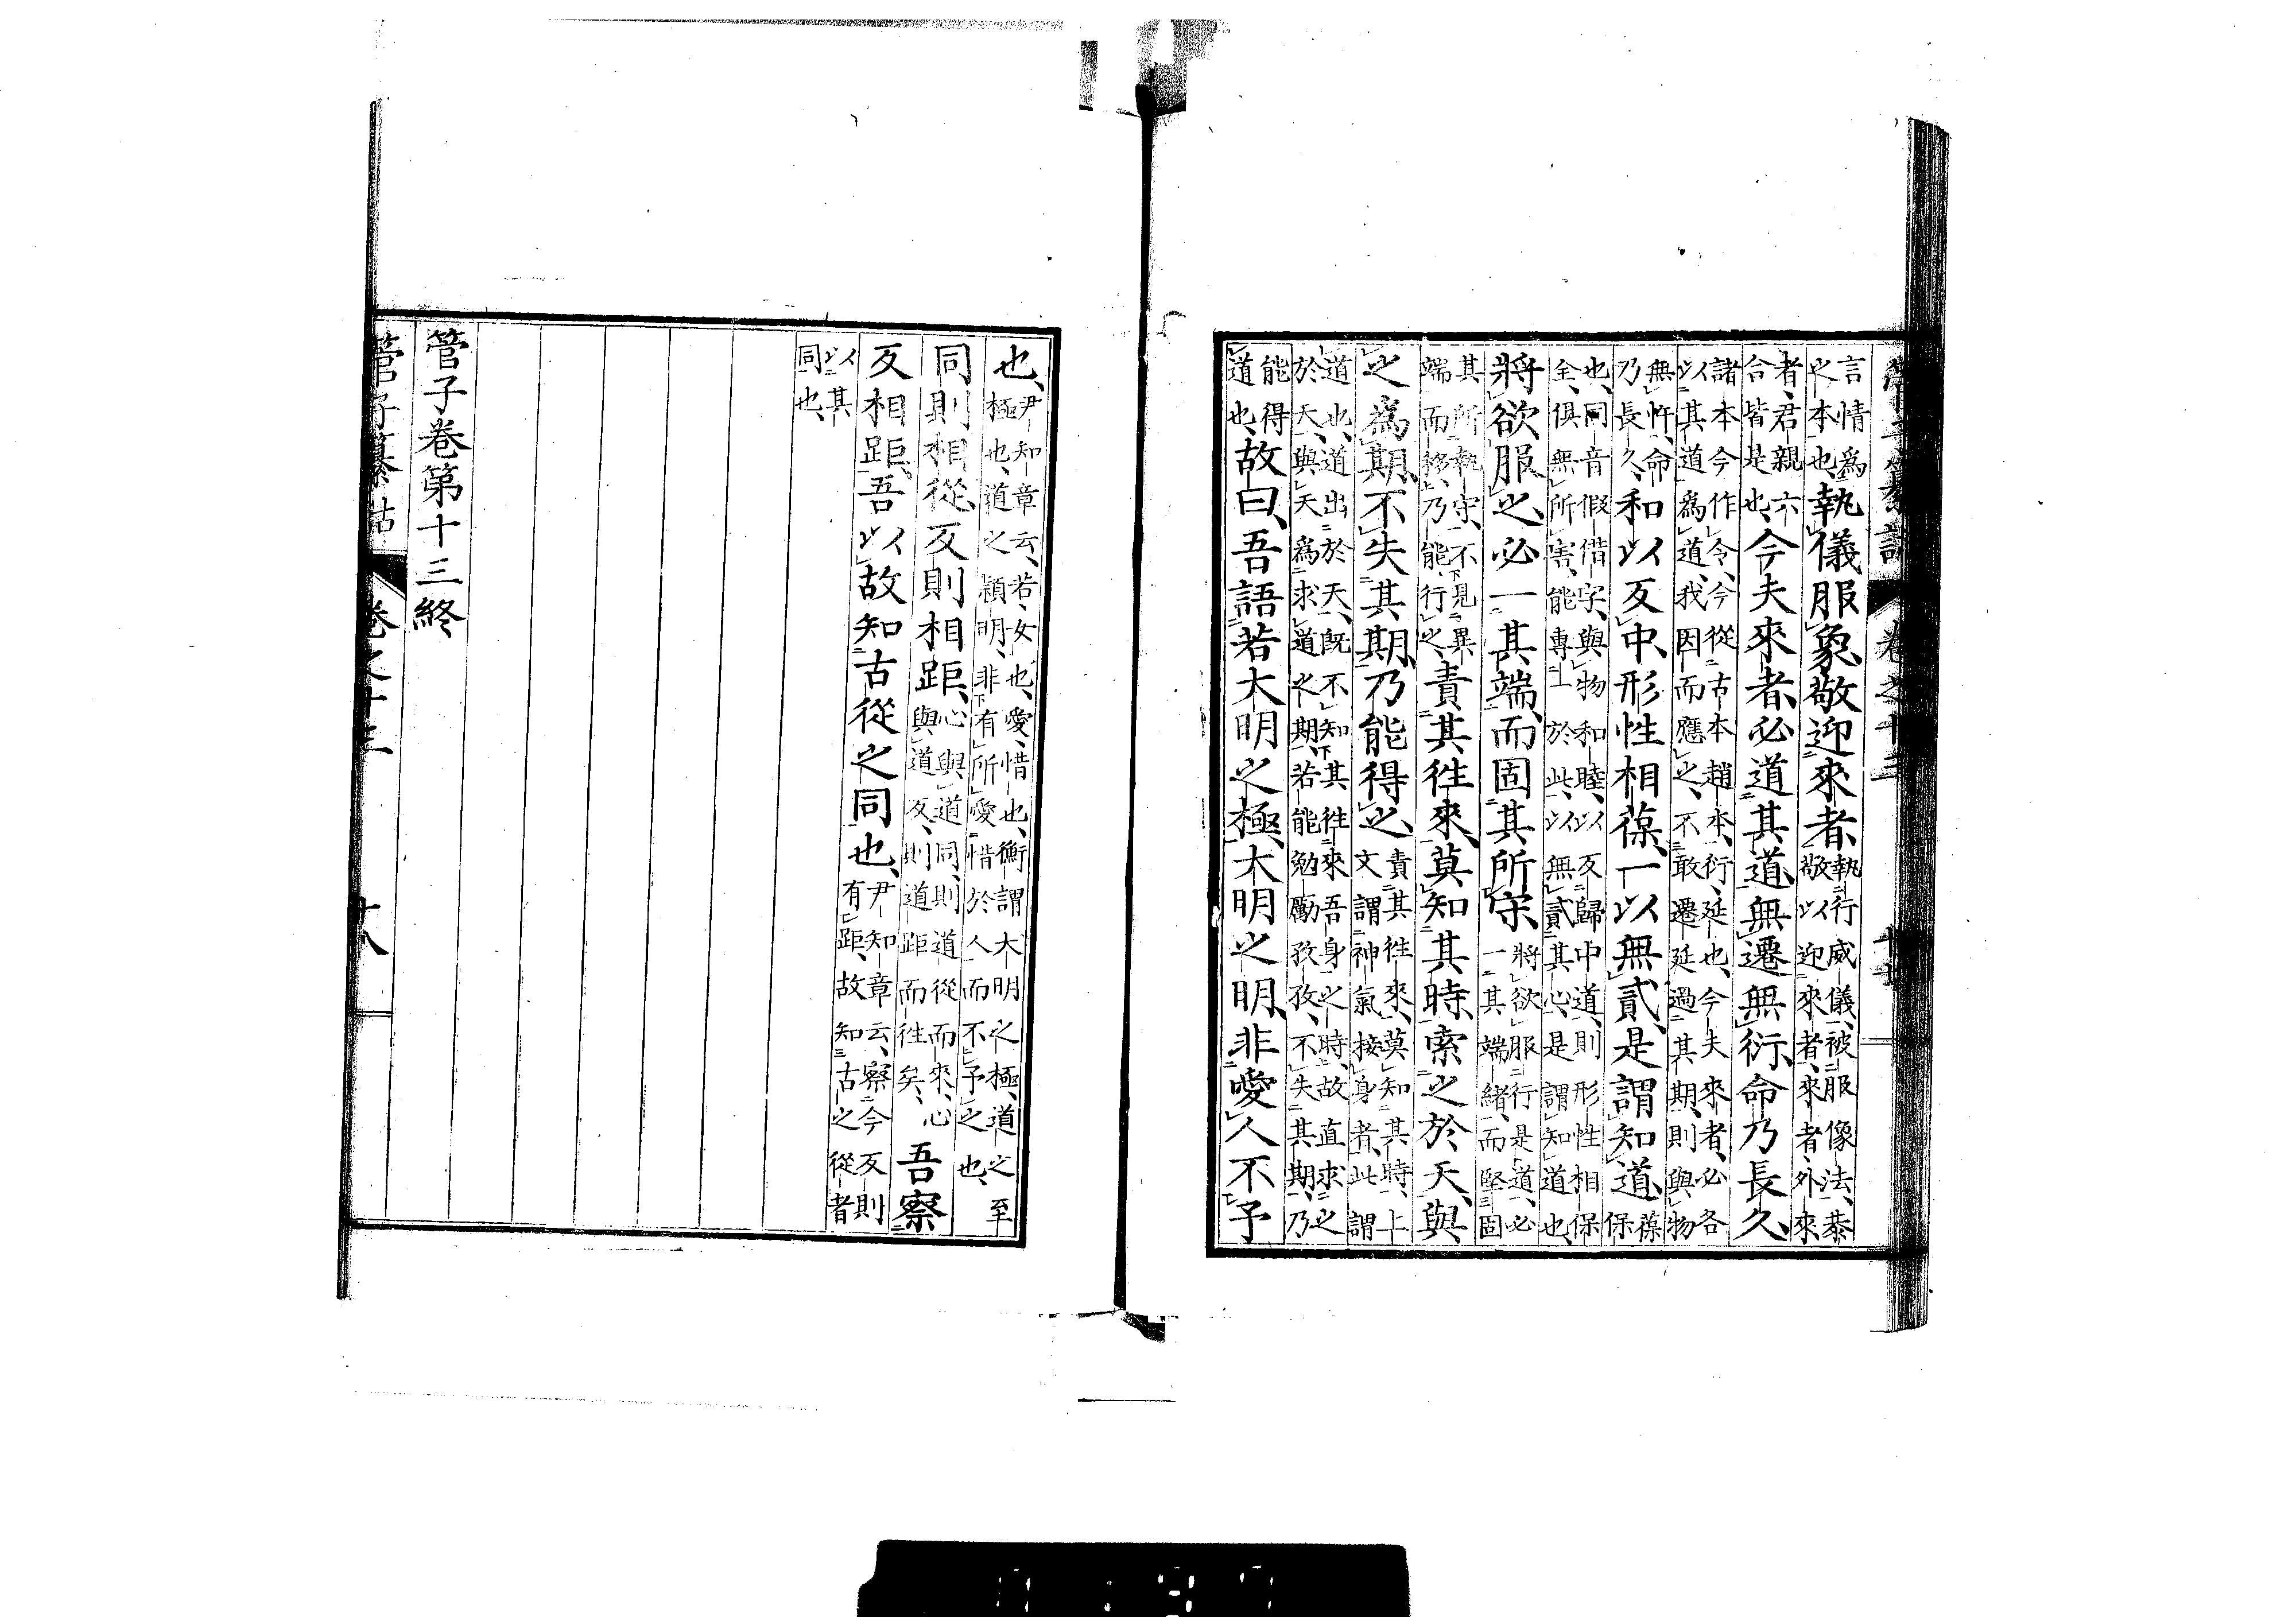 管子纂詁 卷之十三 十七
言情爲之本也執儀服象敬迎來者執行威儀被服像法恭敬以迎來者來者外來
者君親六合皆是也今夫來者必道其道無遷無衍命乃長久
諸本今作令今從古本趙本衍延也今夫來者必各以其道爲道我因而應之不敢遷延過其期則與物
無忤命乃長久和以反中形性相葆一以無貳是謂知道葆保
也同音假借字與物和睦以反歸中道則形性相保全俱無所害能專一於此以無貳其心是謂知道也
將欲服之必一其端而固其所守將欲服行是道必一其端緒而堅固
其所執守不見異端而移乃能行之責其往來莫知其時索之於天與
之爲期不失其期乃能得之責其往來莫知其時上文謂神氣接身者此謂
道也道出於天既不知其往來吾身之時故直求之於天與天爲求道之期若能勉勵孜孜不失其期乃
能得道也故曰吾語若大明之極大明之明非愛人不予
也尹知章云若女也愛惜也衡謂大明之極道之至極也道之顯明非有所愛惜於人而不予之也
同則相從反則相距心與道同則道從而來心與道反則道距而往矣吾察
反相距吾以故知古從之同也尹知章云察今反則有距故知古之從者
以其同也
管子卷第十三終
管子纂詁 卷之十三 十八